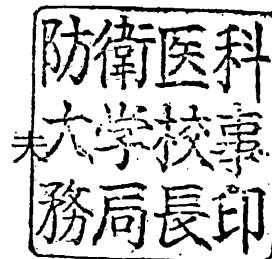 防衛医科
大学校事
務局長印